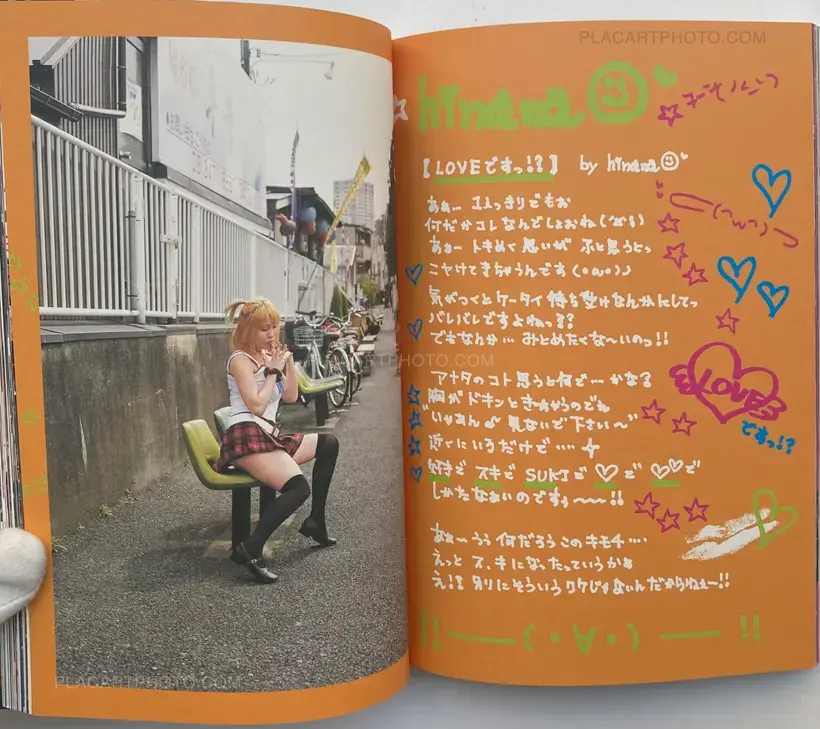 PLACARTPHOTO.COM
hinana
【LOVEですっ!?】 by hinana
あぁー
何だかコレなんでしょおね
あぁー トキめく思いが ふと思うとっ
ニヤけてきちゃうんです(・ω・))
気がつくとケータイ待ち受けなんかにしてっ
バレバレですよねっ??
でもなんか… みとめたくな〜いのっ!!
PLACARTPHOTO.COM
アナタのコト思うと何で…かな?
胸がドキンと
いやあん 見ないで下さい〜"
近くにいるだけで…
好きで スキで SUKIで ♡で ♡♡で
しかたなぁいのですっ〜〜!!
LOVE
ですっ!?
あぁ〜 うぅ 何だろうこのキモチ…
えっと ス、キになったっていうかぁ
え!? 別にそういうワケじゃなぃんだからねぇー!!
!! ——(・∀・)—— !!
PLACARTPHOTO.COM